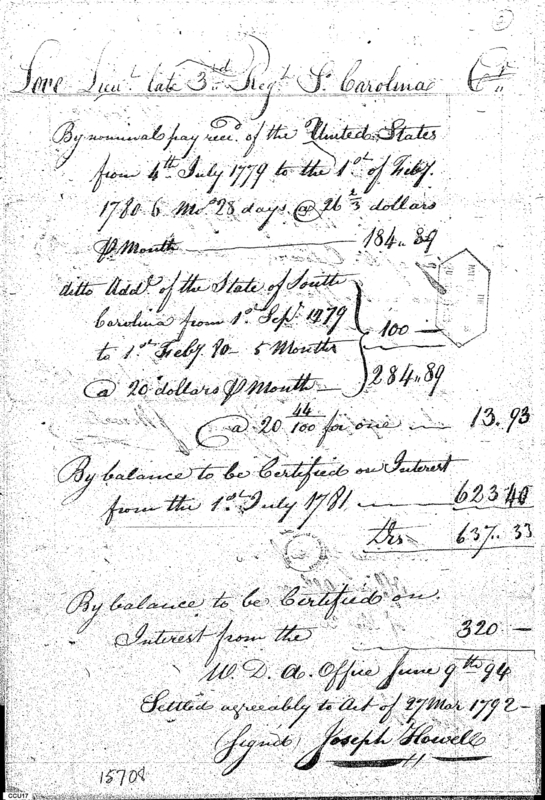 Love Lieut. late 3rd Regt. So. Carolina Cr.
By nominal pay recd. of the United States
from 4th July 1779 to the 1st of Feby.
1780 6 Mos 28 days @ 26 2/3 dollars
⅌ Month 184.. 89
ditto Addl. of the State of South
Carolina from 1st Sepr. 1779
to 1st Feby. 80 - 5 Months 100 —
@ 20 dollars ⅌ Month 284.. 89
@ 20 44/100 for one 13. 93
By balance to be Certified on Interest
from the 1st July 1781 623 40
Drs 637.. 33
By balance to be Certified on
Interest from the 320 —
W. D. A. Office June 9th 94
Settled agreeably to Act of 27 Mar 1792 -
(Signd) Joseph Howell
15708
CCU17